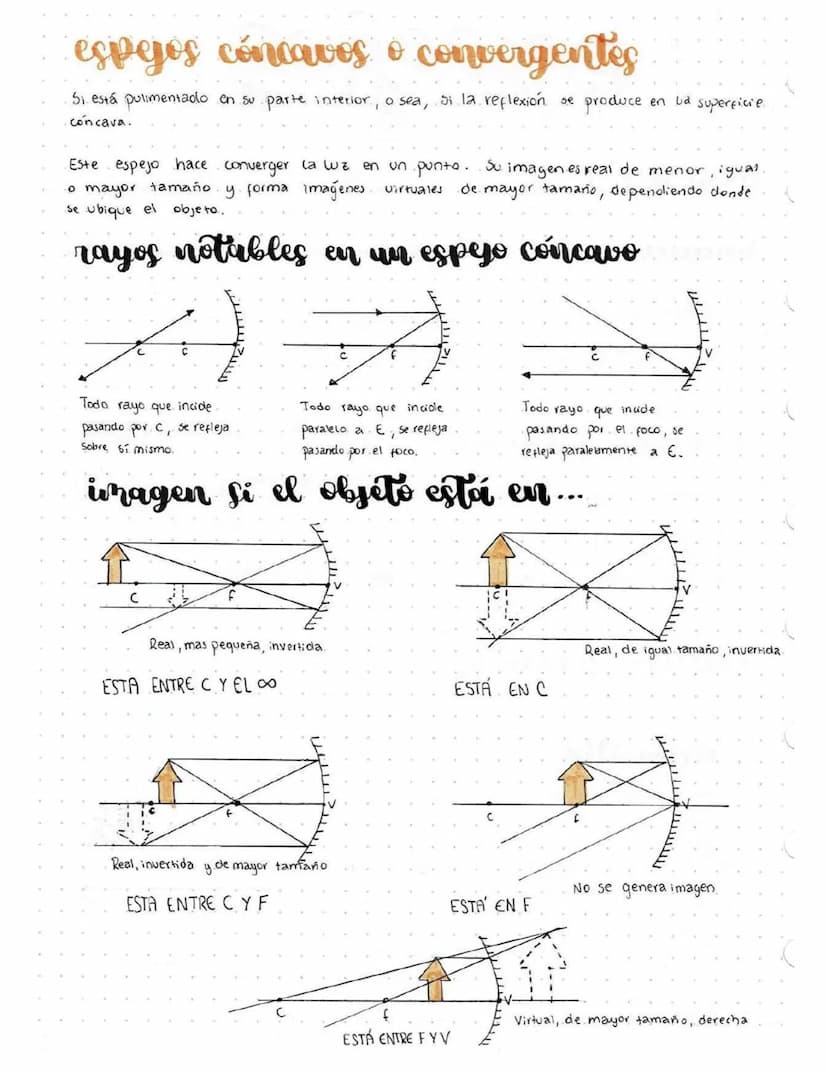 espejos cóncavos o convergentes
Si está pulimentado en su parte interior, o sea, si la reflexión se produce en la superficie
cóncava.
Este espejo hace converger la luz en un punto. Su imagen es real de menor, igual
o mayor tamaño y forma imágenes virtuales de mayor tamaño, dependiendo donde
se ubique el objeto.
rayos notables en un espejo cóncavo
C F V
C F V
C F V
Todo rayo que incide
pasando por C, se refleja
sobre sí mismo.
Todo rayo que incide
paralelo a E, se refleja
pasando por el foco.
Todo rayo que incide
pasando por el foco, se
refleja paralelamente a E.
imagen si el objeto está en...
C F V
Real, mas pequeña, invertida.
ESTA ENTRE C Y EL ∞
C F V
Real, de igual tamaño, invertida
ESTÁ EN C
C F V
Real, invertida y de mayor tamaño
ESTA ENTRE C Y F
C F V
No se genera imagen
ESTÁ EN F
C F V
Virtual, de mayor tamaño, derecha
ESTÁ ENTRE F Y V